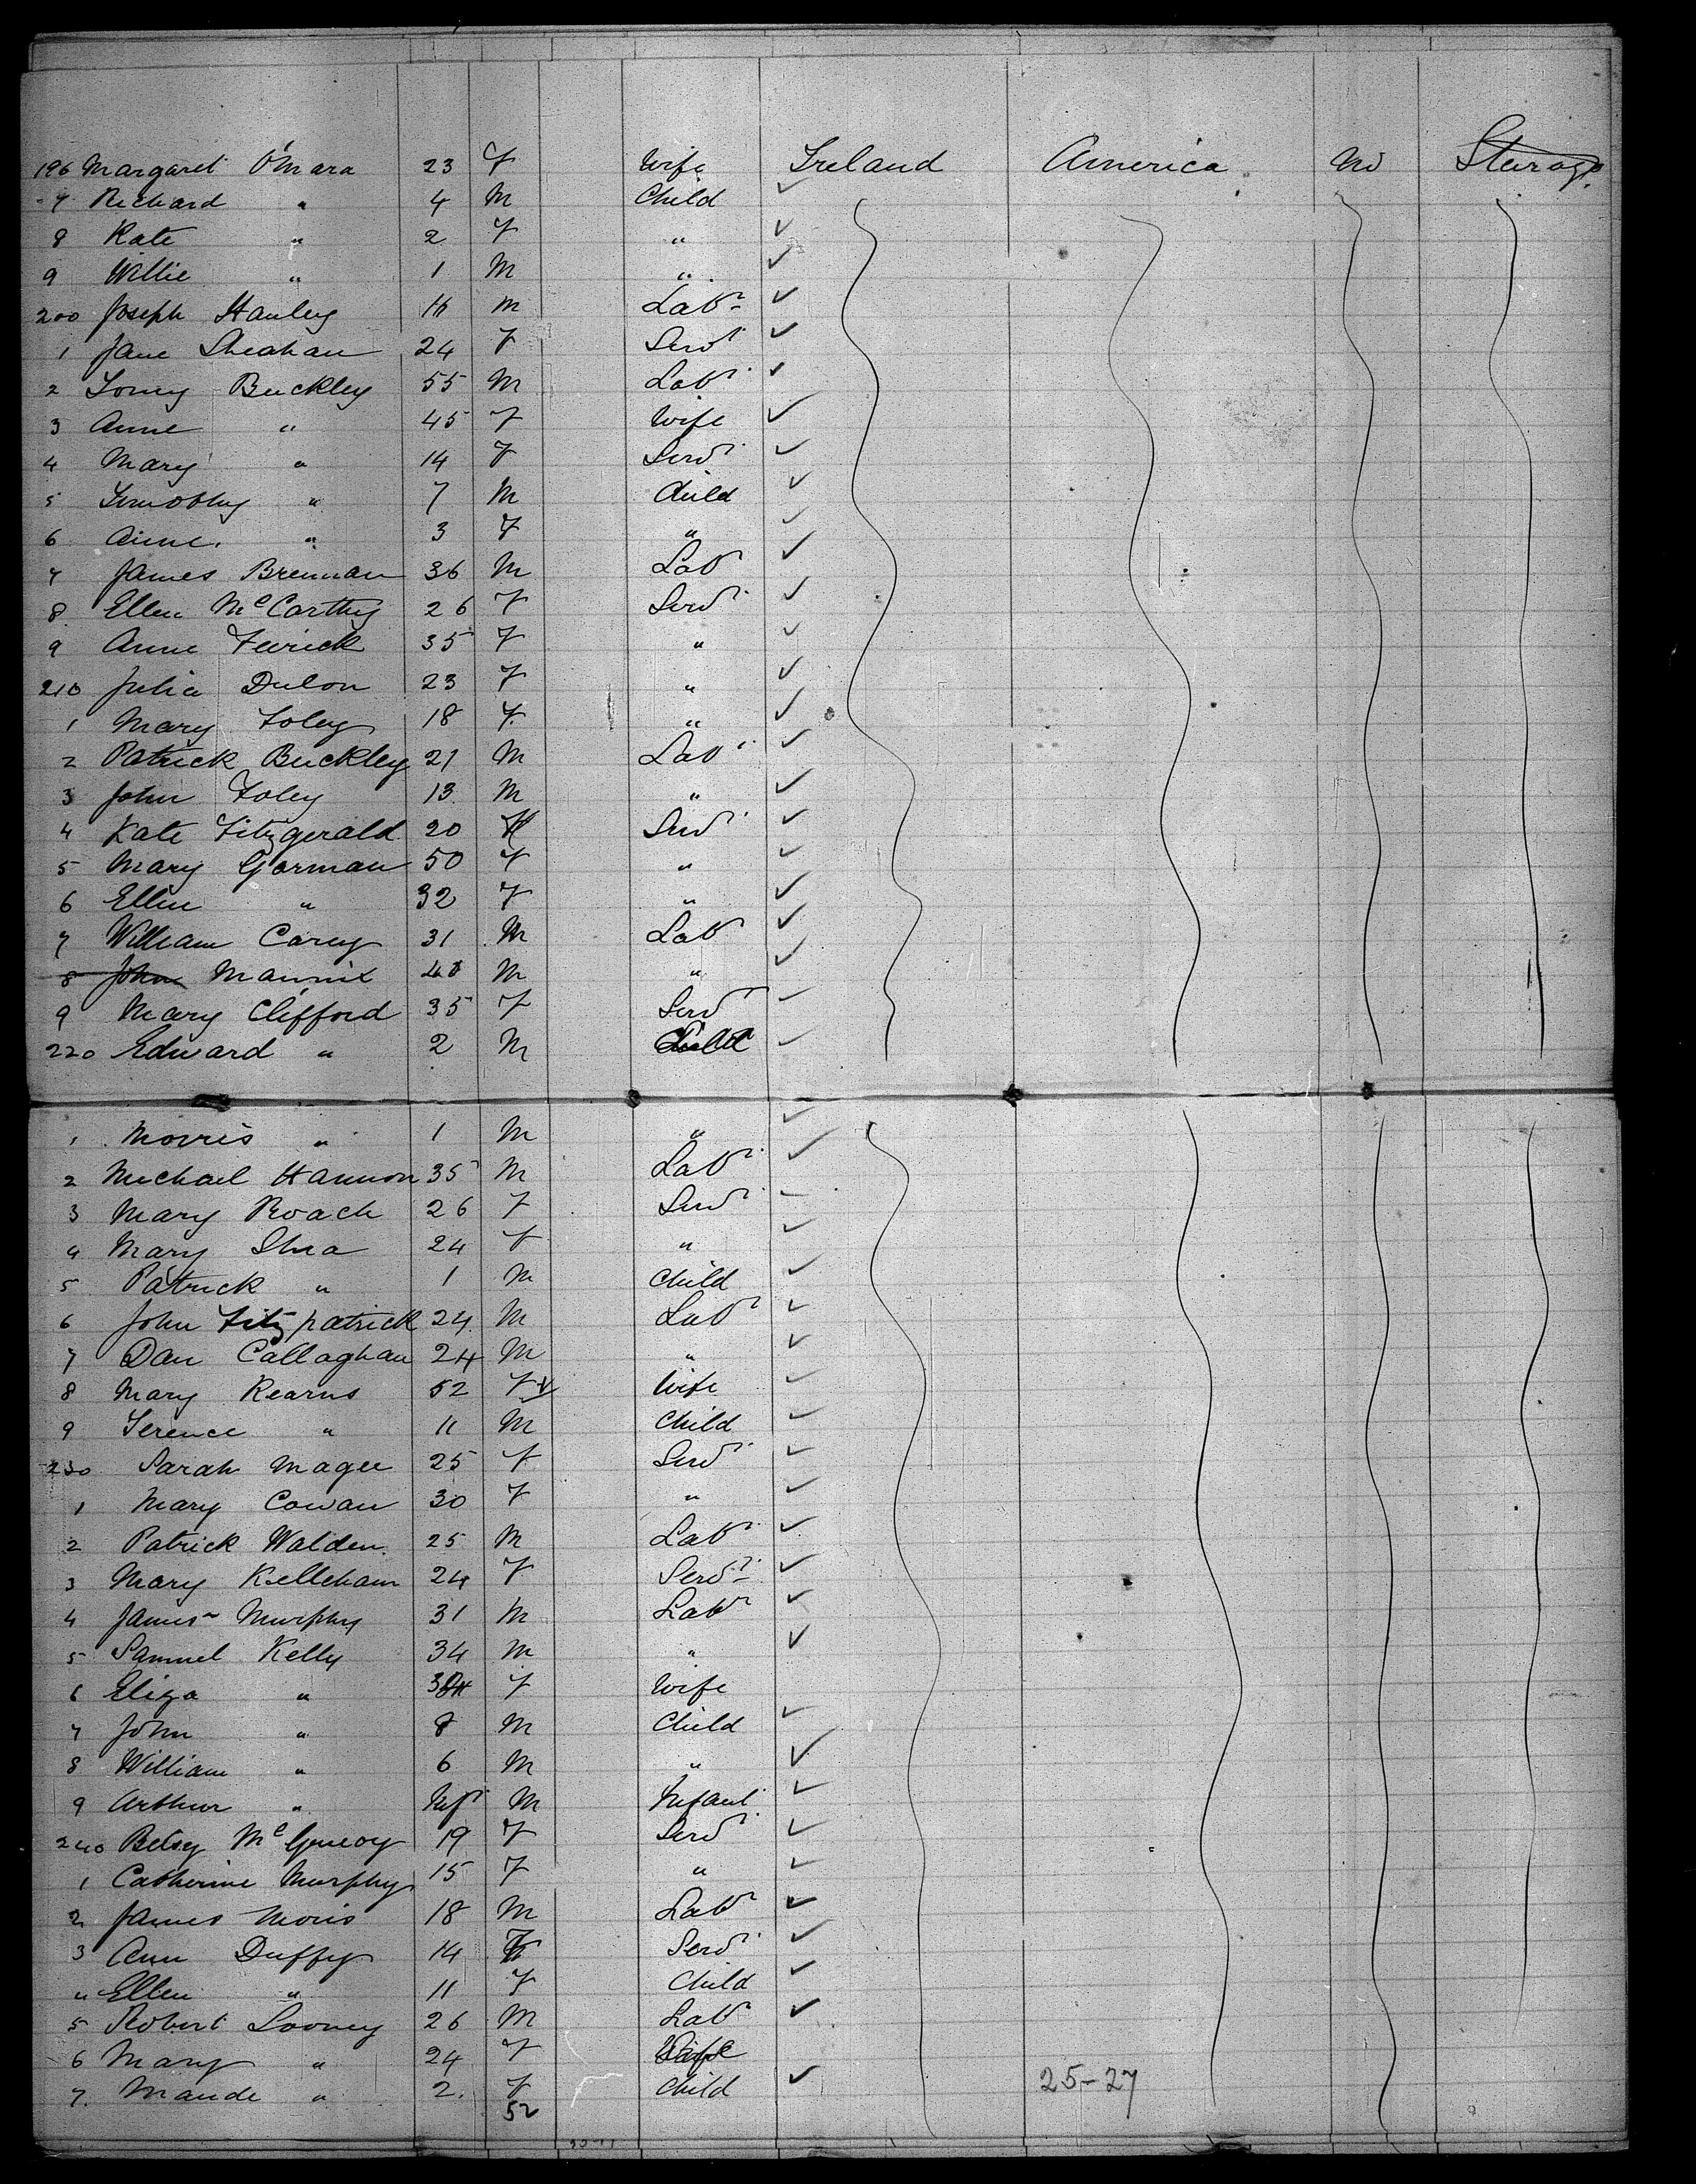 196 Margaret O'Mara 23 F Wife Ireland America No Sterage
7 Richard " 4 M Child
8 Kate " 2 F "
9 Willie " 1 M "
200 Joseph Hanley M Labr
1 Jane Sheahan 24 F Servt
2 Buckley 55 M Labr
3 Anne " 45 F Wife
4 Mary " 14 F Servt
5 Timothy " 7 M Child
6 Anne " 3 F "
7 James Brennan 36 M Lab
8 Ellen McCarthy 26 F Servt
9 Anne 35 F "
210 Julia 23 F "
1 Mary Foley 18 F "
2 Patrick Buckley 21 M Labr
3 John Foley 13 M "
4 Kate Fitzgerald 20 F Servt
5 Mary Gorman 50 F "
6 Ellen " 32 F "
7 William Carey 31 M Lab
8 John Mannix M "
9 Mary Clifford 35 F Servt
220 Edward " 2 M Child
1 Morris " 1 M "
2 Michael Hannon 35 M Labr
3 Mary Roach 26 F Servt
4 Mary Shea 24 F "
5 Patrick " 1 M Child
6 John Fitzpatrick 24 M Labr
7 Dan Callaghan 24 M "
8 Mary Kearns 52 F Wife
9 Terence " 11 M Child
230 Sarah Magee 25 F Servt
1 Mary Cowan 30 F "
2 Patrick Walden 25 M Labr
3 Mary Kelleham 24 F Servt
4 James Murphy 31 M Labr
5 Samuel Kelly 34 M "
6 Eliza " F Wife
7 John " 8 M Child
8 William " 6 M "
9 Arthur " Inft M Infant
240 Betsy 19 F Servt
1 Catherine Murphy 15 F "
2 James Moris 18 M Labr
3 Ann Duffy 14 F Servt
" Ellen " 11 F Child
5 Robert Looney 26 M Lab
6 Mary " 24 F Wife
7 Maude " 2 F Child
25-27
52